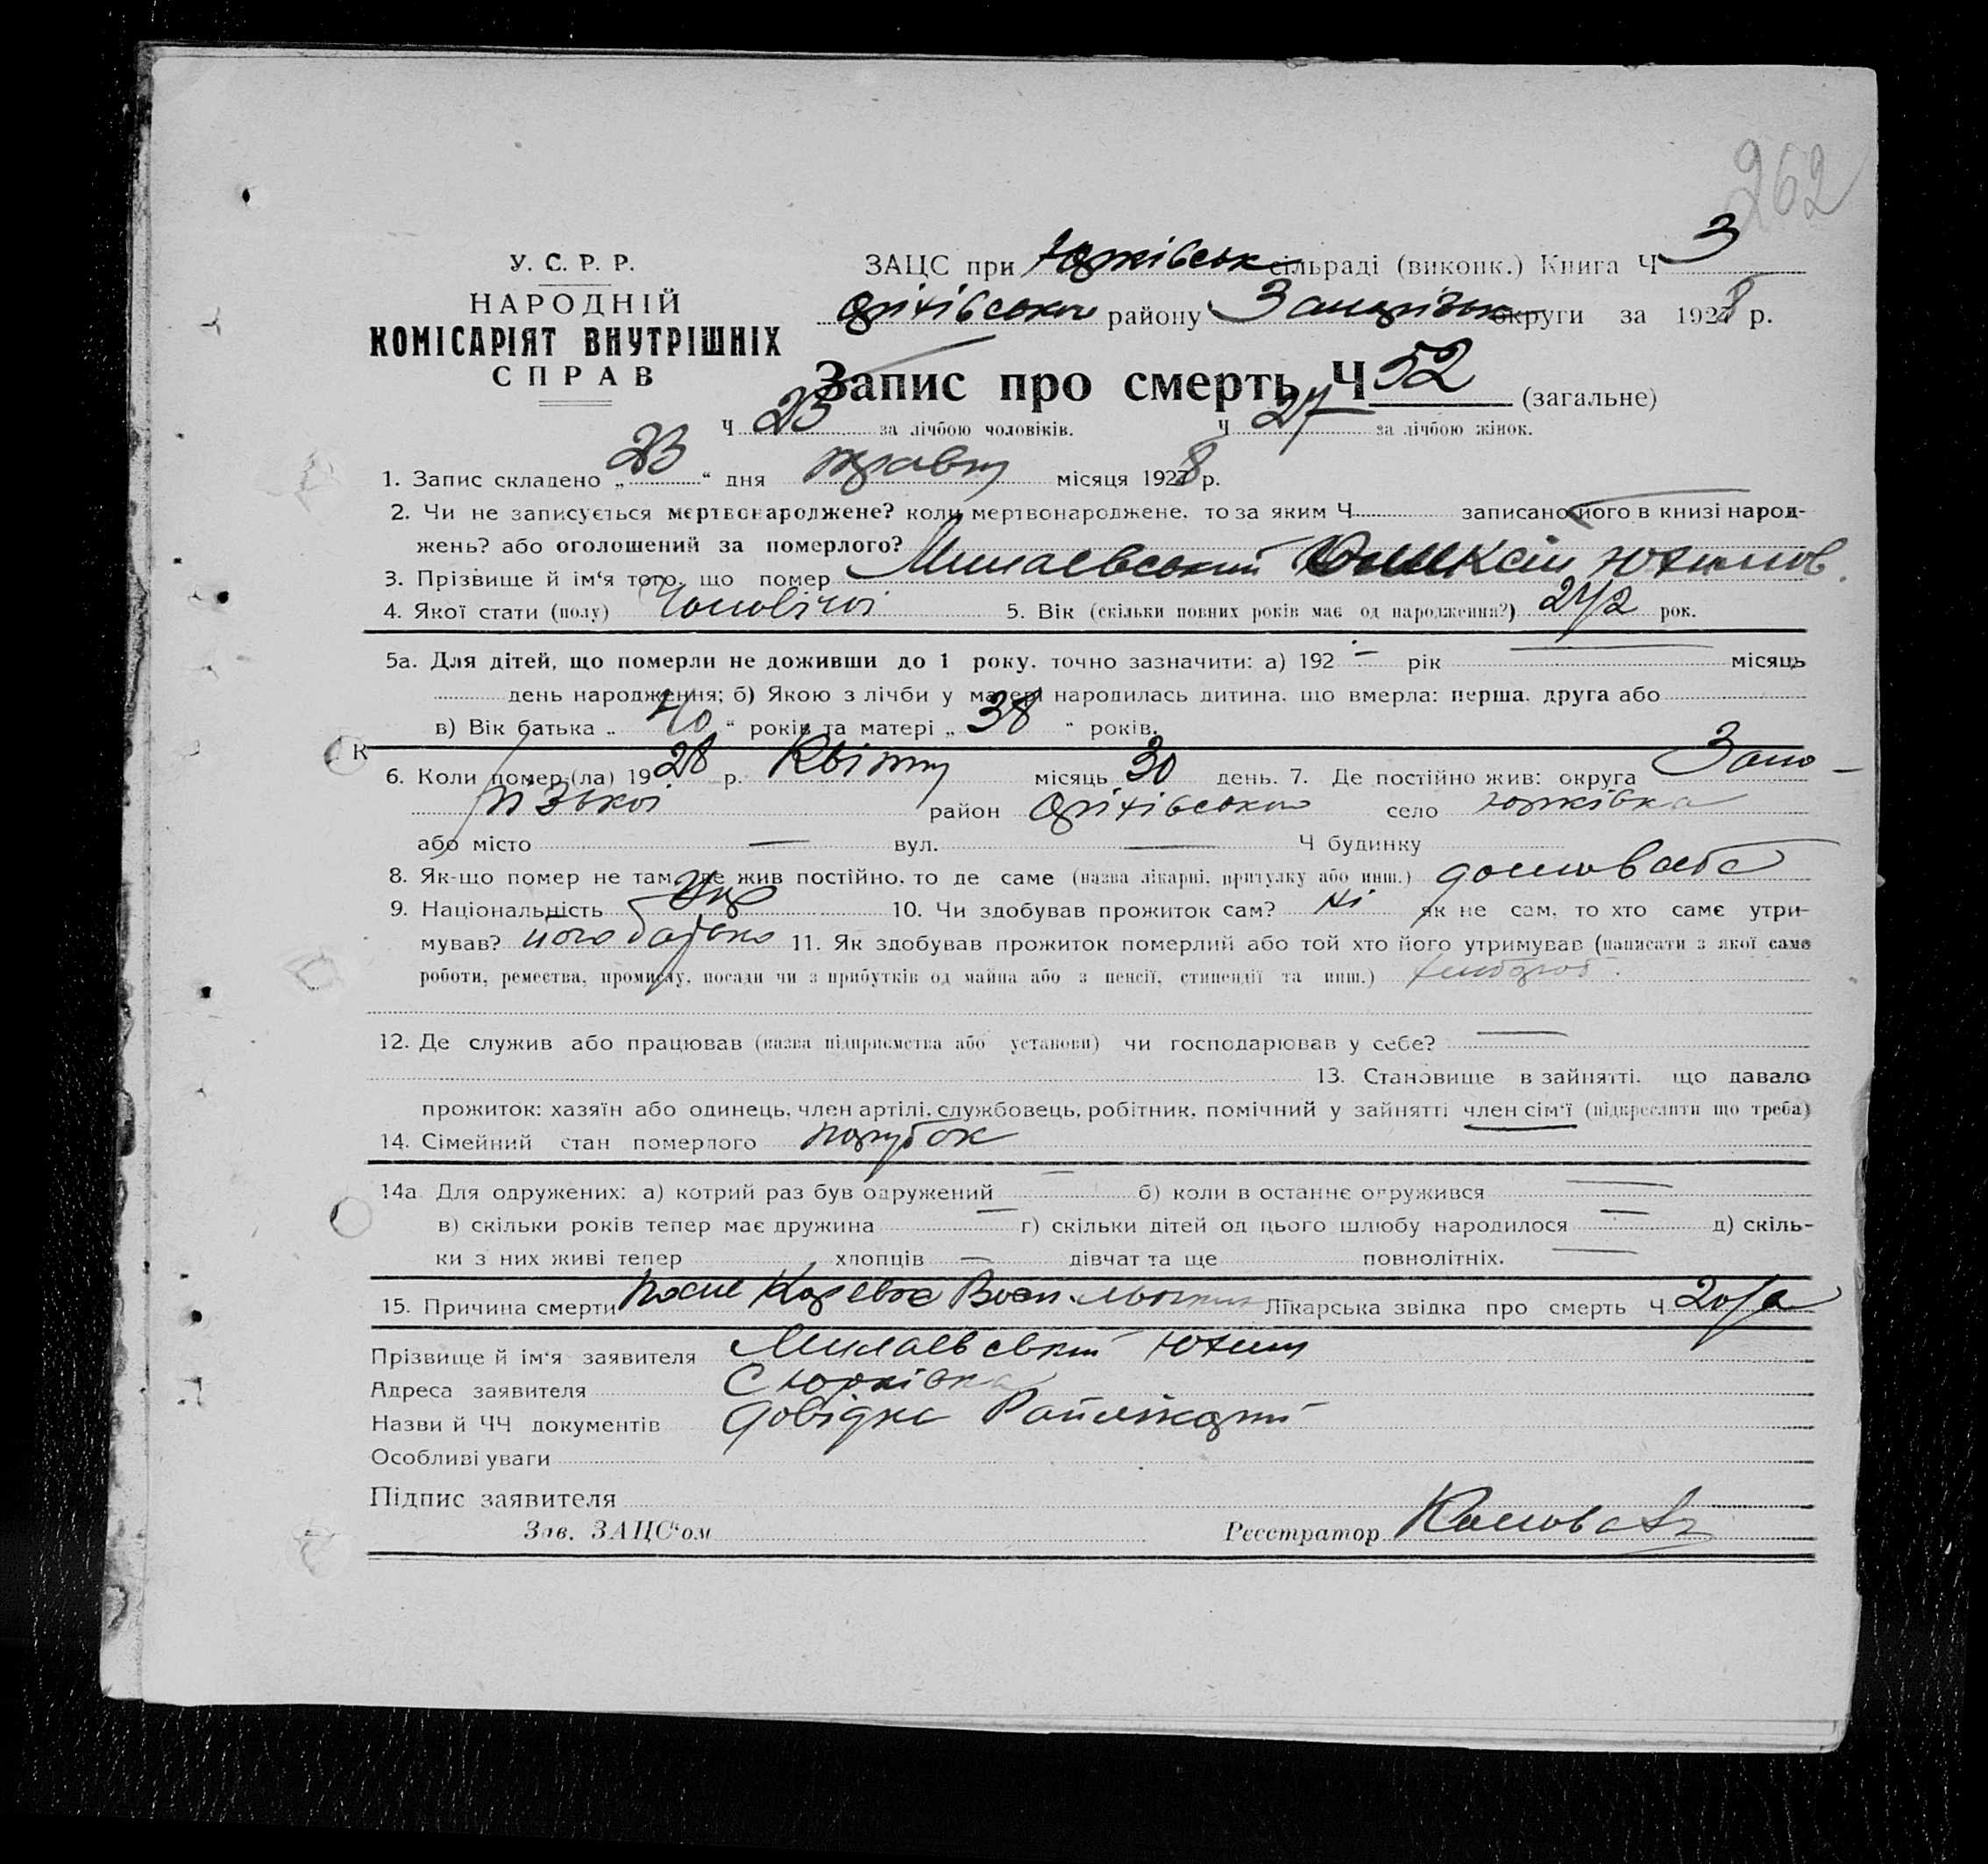 262
У. С. Р. Р.
НАРОДНІЙ
КОМІСАРІЯТ ВНУТРІШНІХ
СПРАВ
ЗАЦС при Юрківськ сільраді (виконк.) Книга Ч 3
Оріхівського району Запорізьк округи за 1928 р.
Запис про смерть Ч 52 (загальне)
Ч 25 за лічбою чоловіків. Ч 27 за лічбою жінок.
1. Запис складено „ 23 “ дня травня місяця 1928 р.
2. Чи не записується мертвонароджене? коли мертвонароджене, то за яким Ч записано його в книзі народ-
жень? або оголошений за померлого?
3. Прізвище й ім‘я того, що помер Милаєвський Юхимов.
4. Якої стати (полу) Чоловічої 5. Вік (скільки повних років має од народження?) 2 1/2 рок.
5а. Для дітей, що померли не доживши до 1 року, точно зазначити: а) 192 — рік — місяць
день народження; б) Якою з лічби у матері народилась дитина, що вмерла: перша, друга або
в) Вік батька „ 40 “ років та матері „ 38 “ років.
К
6. Коли помер (ла) 1928 р. Квітня місяць 30 день. 7. Де постійно жив: округа Запо-
різької район Оріхівського село Юрківка
або місто — вул. — Ч будинку
8. Як-що помер не там, де жив постійно, то де саме (назва лікарні, притулку або инш.)
9. Національність Укр 10. Чи здобував прожиток сам? Ні як не сам, то хто саме утри-
мував? його батько 11. Як здобував прожиток померлий або той хто його утримував (написати з якої саме
роботи, ремества, промислу, посади чи з прибутків од майна або з пенсії, стипендії та инш.) хлібороб.
12. Де служив або працював (назва підприємства або установи) чи господарював у себе? —
13. Становище в зайнятті, що давало
прожиток: хазяїн або одинець, член артілі, службовець, робітник, помічний у зайнятті член сім‘ї (підкреслити що треба)
14. Сімейний стан померлого парубок
14а Для одружених: а) котрий раз був одружений — б) коли в останнє одружився —
в) скільки років тепер має дружина — г) скільки дітей од цього шлюбу народилося — д) скіль-
ки з них живі тепер хлопців — дівчат та ще повнолітніх. —
15. Причина смерти После Лікарська звідка про смерть Ч
Прізвище й ім‘я заявителя Милаєвський Юхим
Адреса заявителя С Юрківка
Назви й ЧЧ документів Довідка Райлікарні
Особливі уваги
Підпис заявителя
Зав. ЗАЦС‘ом Реєстратор